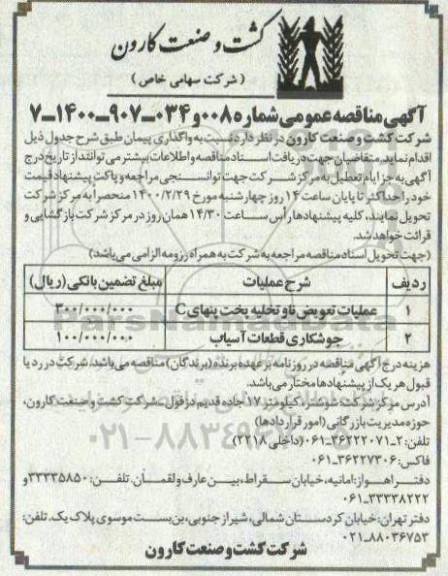 کشت و صنعت کارون
(شرکت سهامی خاص)
آگهی مناقصه عمومی شماره ۰۰۸ و ۰۳۴-۹۰۷-۱۴۰۰-۷
شرکت کشت و صنعت کارون در نظر دارد نسبت به واگذاری پیمان طبق شرح جدول ذیل
اقدام نماید. متقاضیان جهت دریافت اسناد مناقصه و اطلاعات بیشتر می توانند از تاریخ درج
آگهی به جز ایام تعطیل به مرکز شرکت جهت توانسنجی مراجعه و پاکت پیشنهاد قیمت
خود را حداکثر تا پایان ساعت ۱۴ روز چهارشنبه مورخ ۱۴۰۰/۲/۲۹ منحصرا به مرکز شرکت
تحویل نمایند، کلیه پیشنهادها رأس ساعت ۱۴/۳۰ همان روز در مرکز شرکت بازگشایی و
قرائت خواهد شد.
(جهت تحویل اسناد مناقصه مراجعه به شرکت به همراه رزومه الزامی می باشد)
ردیف شرح عملیات مبلغ تضمین بانکی (ریال)
۱ عملیات تعویض ناو تخلیه پخت پنهای C ۳۰۰/۰۰۰/۰۰۰
۲ جوشکاری قطعات آسیاب ۱۰۰/۰۰۰/۰۰۰
هزینه درج آگهی مناقصه در روزنامه بر عهده برنده (برندگان) مناقصه می باشد، شرکت در رد یا
قبول هر یک از پیشنهادها مختار می باشد.
آدرس مرکز شرکت: شوشتر، کیلومتر ۱۷ جاده قدیم دزفول - شرکت کشت و صنعت کارون،
حوزه مدیریت بازرگانی (امور قراردادها)
تلفن: ۲-۳۶۲۲۲۰۷۱-۰۶۱ (داخلی ۲۲۱۸)
فاکس: ۳۶۲۲۷۳۰۶-۰۶۱
دفتر اهواز: امانیه، خیابان سقراط، بین عارف و لقمان تلفن: ۳۳۳۳۵۸۵۰ و
۳۳۳۳۸۲۲۲-۰۶۱
دفتر تهران: خیابان کردستان شمالی، شیراز جنوبی، بن بست موسوی پلاک یک. تلفن:
۸۸۰۳۶۷۵۳-۰۲۱
شرکت کشت و صنعت کارون
ParsNamadData
۰۲۱-۸۸۳۴۹۶